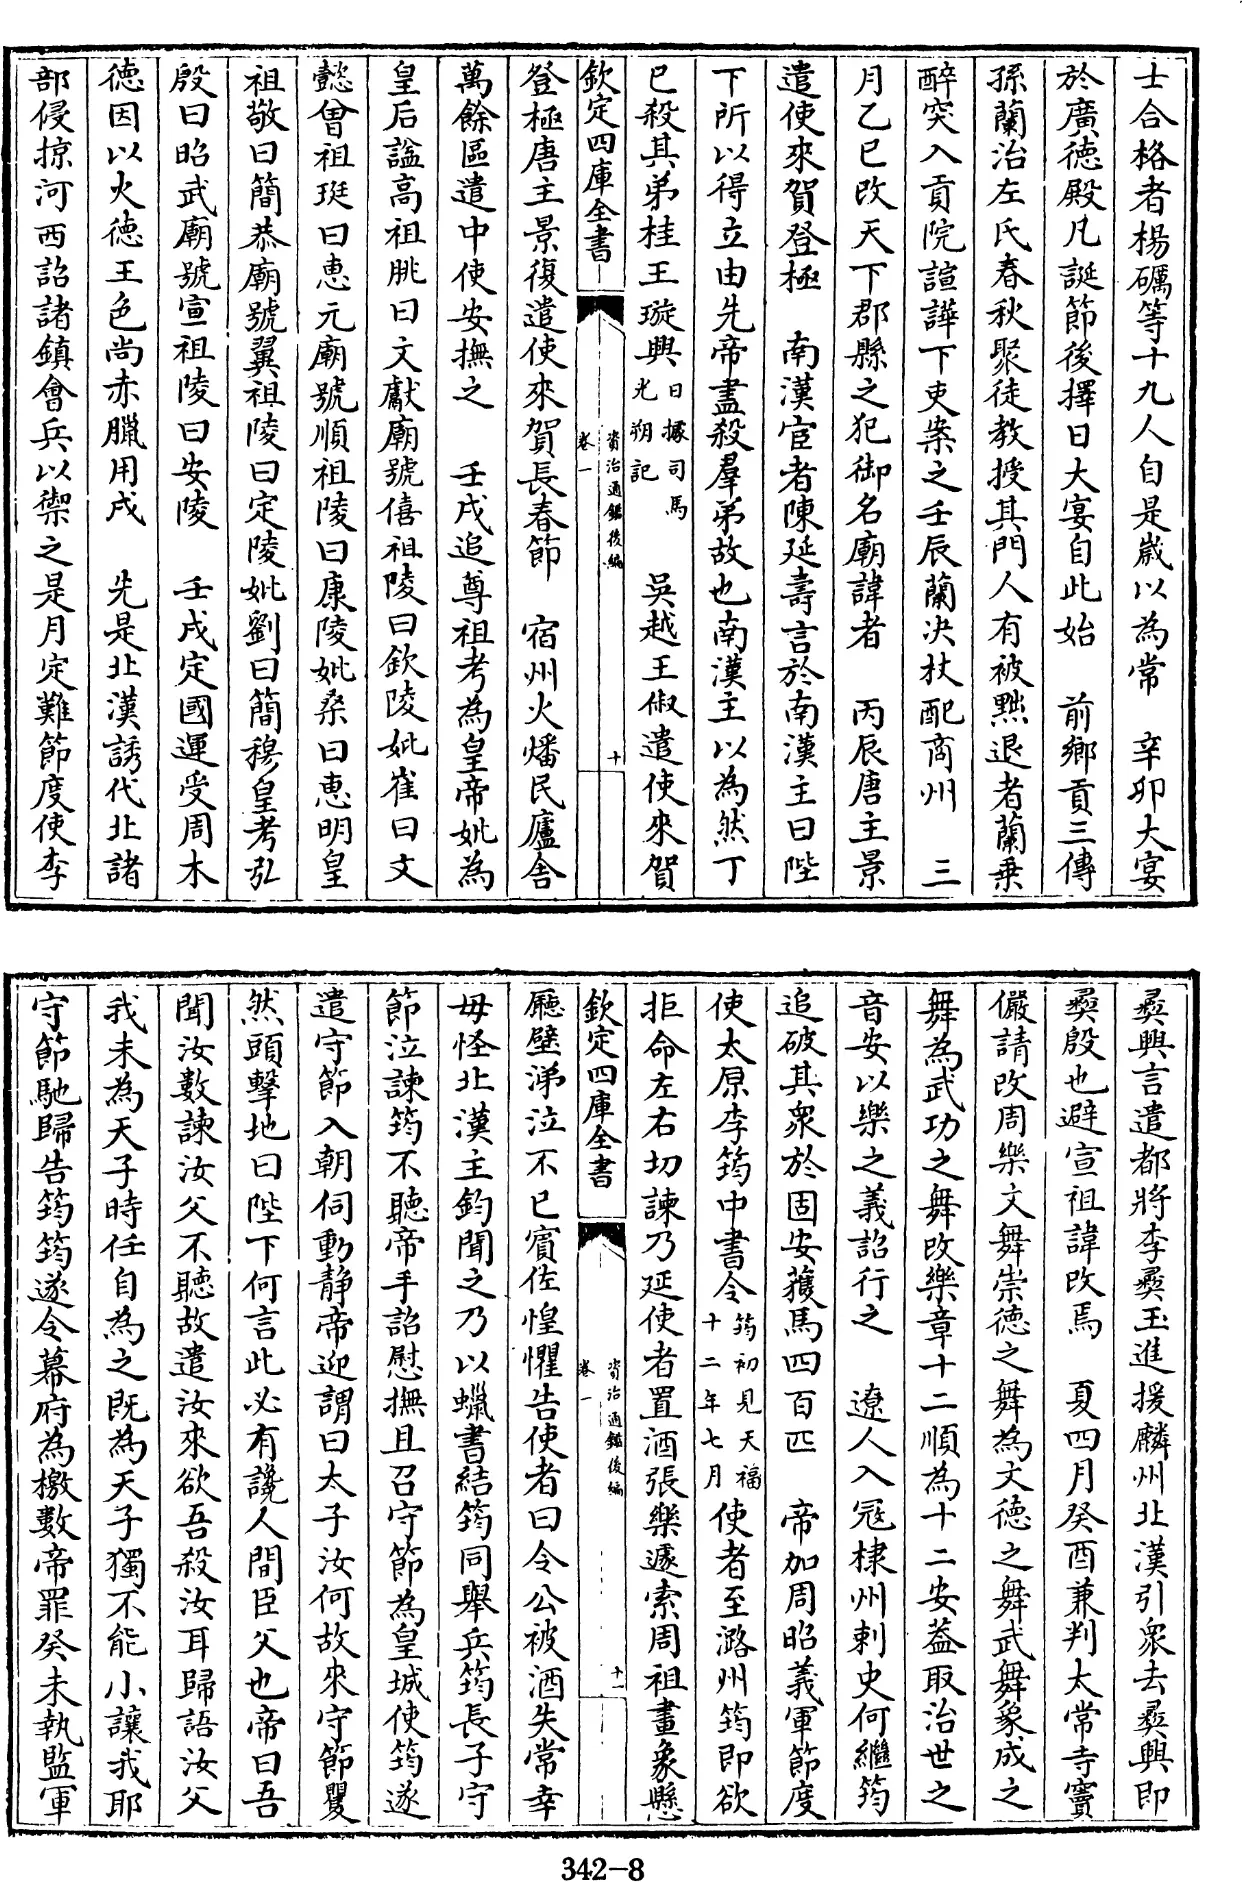 士合格者楊礪等十九人自是歲以為常　辛卯大宴
於廣德殿凡誕節後擇日大宴自此始　前鄉貢三傳
孫蘭治左氏春秋聚徒教授其門人有被黜退者蘭乗
醉突入貢院諠譁下吏案之壬辰蘭決杖配商州　三
月乙巳改天下郡縣之犯御名廟諱者　丙辰唐主景
遣使來賀登極　南漢宦者陳延壽言於南漢主曰陛
下所以得立由先帝盡殺羣弟故也南漢主以為然丁
已殺其弟桂王璇興日據司馬光朔記　吳越王俶遣使來賀
欽定四庫全書　資治通鑑後編卷一　十
登極唐主景復遣使來賀長春節　宿州火燔民廬舍
萬餘區遣中使安撫之　壬戌追尊祖考為皇帝妣為
皇后諡高祖朓曰文獻廟號僖祖陵曰欽陵妣崔曰文
懿曾祖珽曰惠元廟號順祖陵曰康陵妣桑曰惠明皇
祖敬曰簡恭廟號翼祖陵曰定陵妣劉曰簡穆皇考弘
殷曰昭武廟號宣祖陵曰安陵　壬戌定國運受周木
德因以火德王色尚赤臘用戌　先是北漢誘代北諸
部侵掠河西詔諸鎮會兵以禦之是月定難節度使李
彞興言遣都將李彞玉進援麟州北漢引衆去彞興即
彞殷也避宣祖諱改焉　夏四月癸酉兼判太常寺竇
儼請改周樂文舞崇德之舞為文德之舞武舞象成之
舞為武功之舞改樂章十二順為十二安蓋取治世之
音安以樂之義詔行之　遼人入冦棣州刺史何繼筠
追破其衆於固安獲馬四百匹　帝加周昭義軍節度
使太原李筠中書令筠初見天福十二年七月使者至潞州筠即欲
拒命左右切諫乃延使者置酒張樂遽索周祖畫象懸
欽定四庫全書　資治通鑑後編卷一　十一
廳壁涕泣不已賓佐惶懼告使者曰令公被酒失常幸
毋怪北漢主鈞聞之乃以蠟書結筠同舉兵筠長子守
節泣諫筠不聽帝手詔慰撫且召守節為皇城使筠遂
遣守節入朝伺動靜帝迎謂曰太子汝何故來守節矍
然頭擊地曰陛下何言此必有讒人間臣父也帝曰吾
聞汝數諫汝父不聽故遣汝來欲吾殺汝耳歸語汝父
我未為天子時任自為之既為天子獨不能小讓我耶
守節馳歸告筠筠遂令幕府為檄數帝罪癸未執監軍
342-8